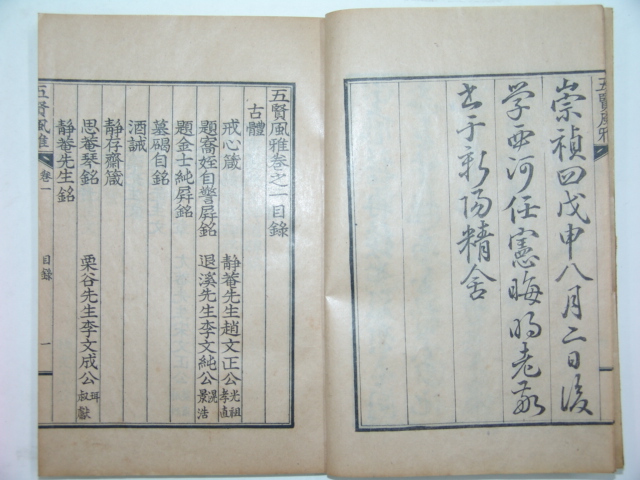 五賢風雅
崇禎四戊申八月二日後
學西河任憲晦明老敬
書于新陽精舍
五賢風雅卷之一目錄
古體
戒心箴 靜菴先生趙文正公 光祖 孝直
題寯姪自警屛銘 退溪先生李文純公 滉 景浩
題金士純屛銘
墓碣自銘
酒誡
靜存齋箴
思菴琴銘 栗谷先生李文成公 珥 叔獻
靜菴先生銘
五賢風雅 卷一 目錄 一